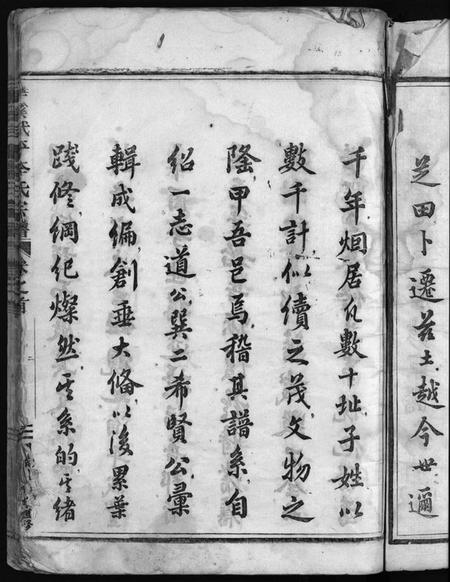 芝田卜遷茲土越今世邇
千年烟居凡數十址子姓以
數千計似續之茂文物之
隆甲吾邑焉稽其譜系自
紹一志道公巽二希賢公彙
輯成編創垂大備以後累葉
踐修綱紀燦然其系的其緒
李氏宗譜
卷之首